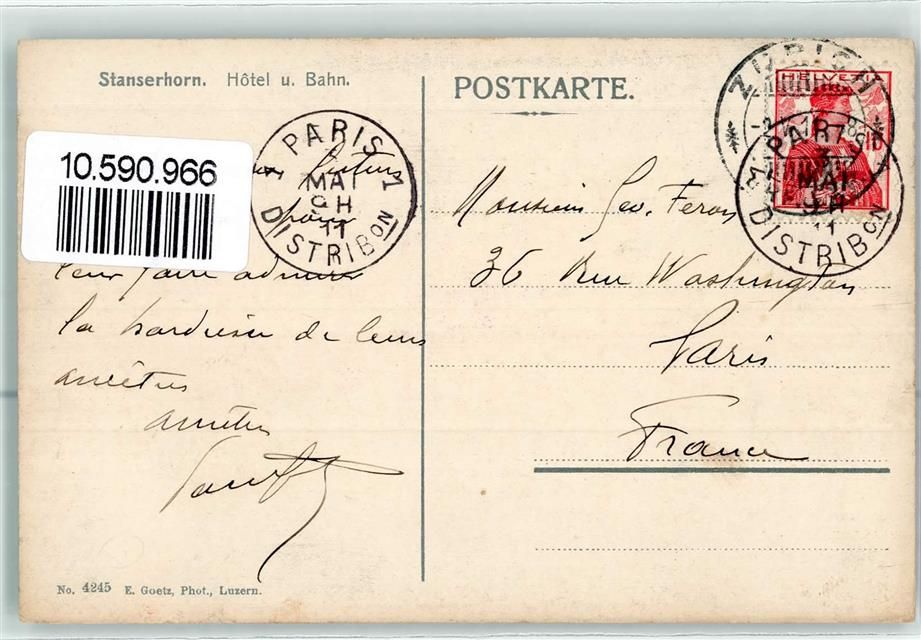 Stanserhorn. Hôtel u. Bahn.
POSTKARTE.
ZÜRICH
HELVETIA
10
PARIS 1
MAI
9H
11
DISTRIBON
PARIS
MAI
9H
11
DISTRIBON
10.590.966
pour
leur faire admirer
la hardiesse de leurs
ancêtres
Monsieur Geo. Feron
36 Rue Washington
Paris
France
No. 4245 E. Goetz, Phot., Luzern.